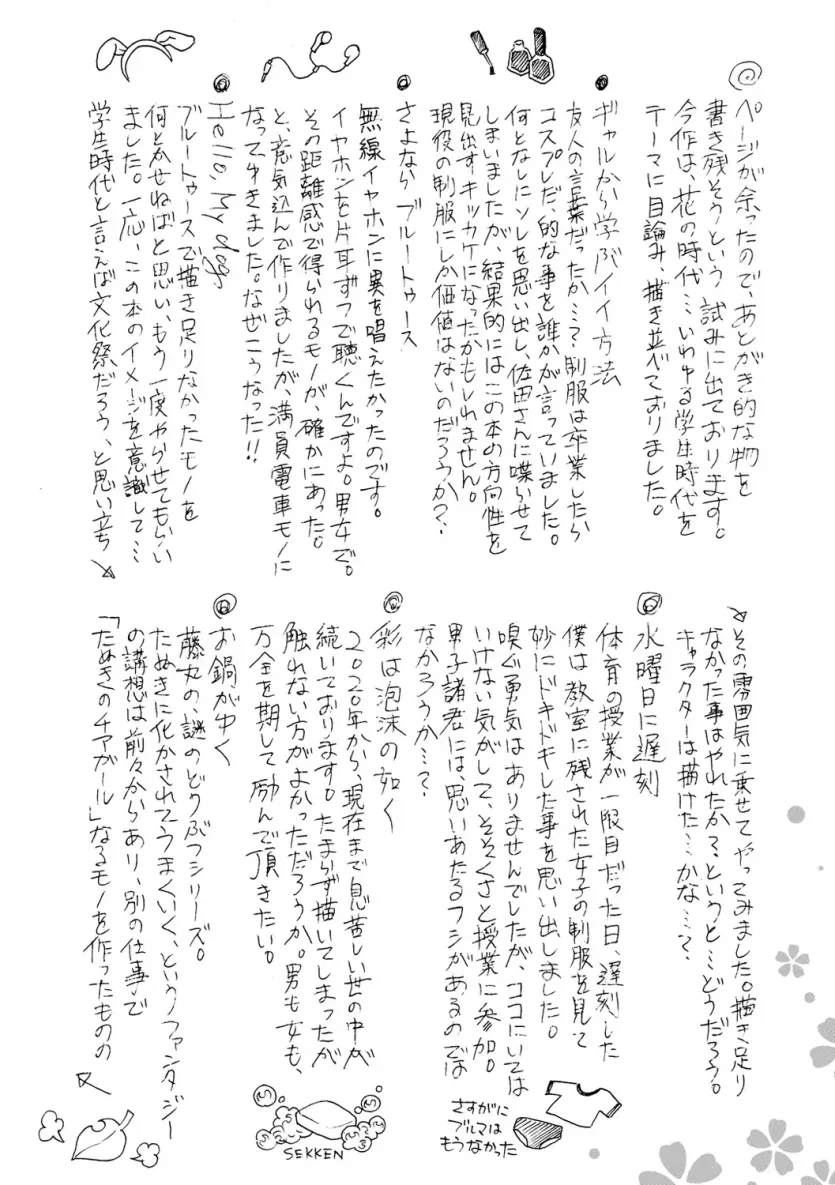 ◎ページが余ったので、あとがき的な物を
書き残そうという試みに出ております。
今作は、花の時代…いわゆる学生時代を
テーマに目論み、描き並べておりました。
ギャルから学ぶイイ方法
友人の言葉だったか…?制服は卒業したら
コスプレだ、的な事を誰かが言っていました。
何となしにソレを思い出し、佐田さんに喋らせて
しまいましたが、結果的にはこの本の方向性を
見出すキッカケになったかもしれません。
現役の制服にしか価値はないのだろうか?
さよならブルートゥース
無線イヤホンに異を唱えたかったのです。
イヤホンを片耳ずつで聴くんですよ。男女で。
その距離感で得られるモノが、確かにあった。
と、意気込んで作りましたが、満員電車モノに
なってゆきました。なぜこうなった!!
Hello, My dog
ブルートゥースで描き足りなかったモノを
何とかせねばと思い、もう一度やらせてもらい
ました。一応、この本のイメージを意識して…
学生時代と言えば文化祭だろう、と思い立ち↘
↘その雰囲気に乗せてやってみました。描き足り
なかった事はやれたか?、というと…どうだろう。
キャラクターは描けた…かな…?
水曜日に遅刻
体育の授業が一限目だった日、遅刻した
僕は教室に残された女子の制服を見て
妙にドキドキした事を思い出しました。
嗅ぐ勇気はありませんでしたが、ココにいては
いけない気がして、そそくさと授業に参加。
男子諸君には、思いあたるフシがあるのでは
なかろうか…?
さすがに
ブルマは
もうなかった
彩は泡沫の如く
2020年から、現在まで息苦しい世の中が
続いております。たまらず描いてしまったが
触れない方がよかっただろうか。男も女も、
万全を期して励んで頂きたい。
SEKKEN
お鍋がゆく
藤丸の、謎のどうぶつシリーズ。
たぬきに化かされてうまくいく、というファンタジー
の構想は前々からあり、別の仕事で
「たぬきのチアガール」なるモノを作ったものの